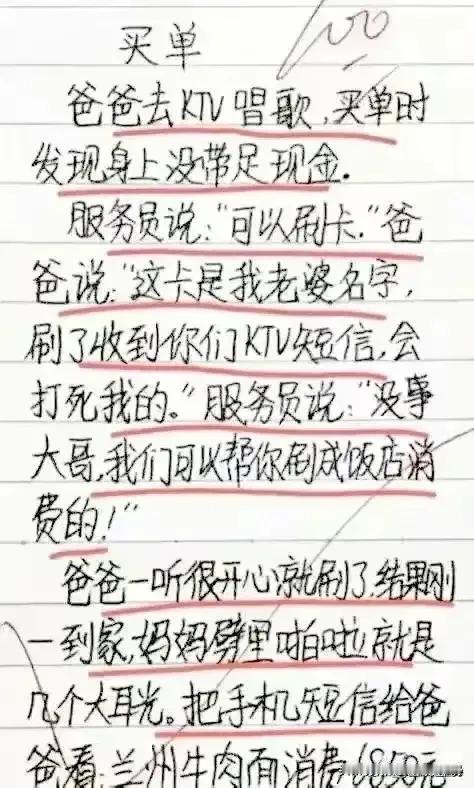 100
买单
爸爸去KTV唱歌，买单时
发现身上没带足现金.
服务员说："可以刷卡."爸
爸说："这卡是我老婆名字，
刷了收到你们KTV短信，会
打死我的."服务员说："没事
大哥，我们可以帮你刷成饭店消
费的！"
爸爸一听很开心就刷了，结果刚
一到家，妈妈劈里啪啦就是
几个大耳光。把手机短信给爸
爸看：兰州牛肉面消费6850元